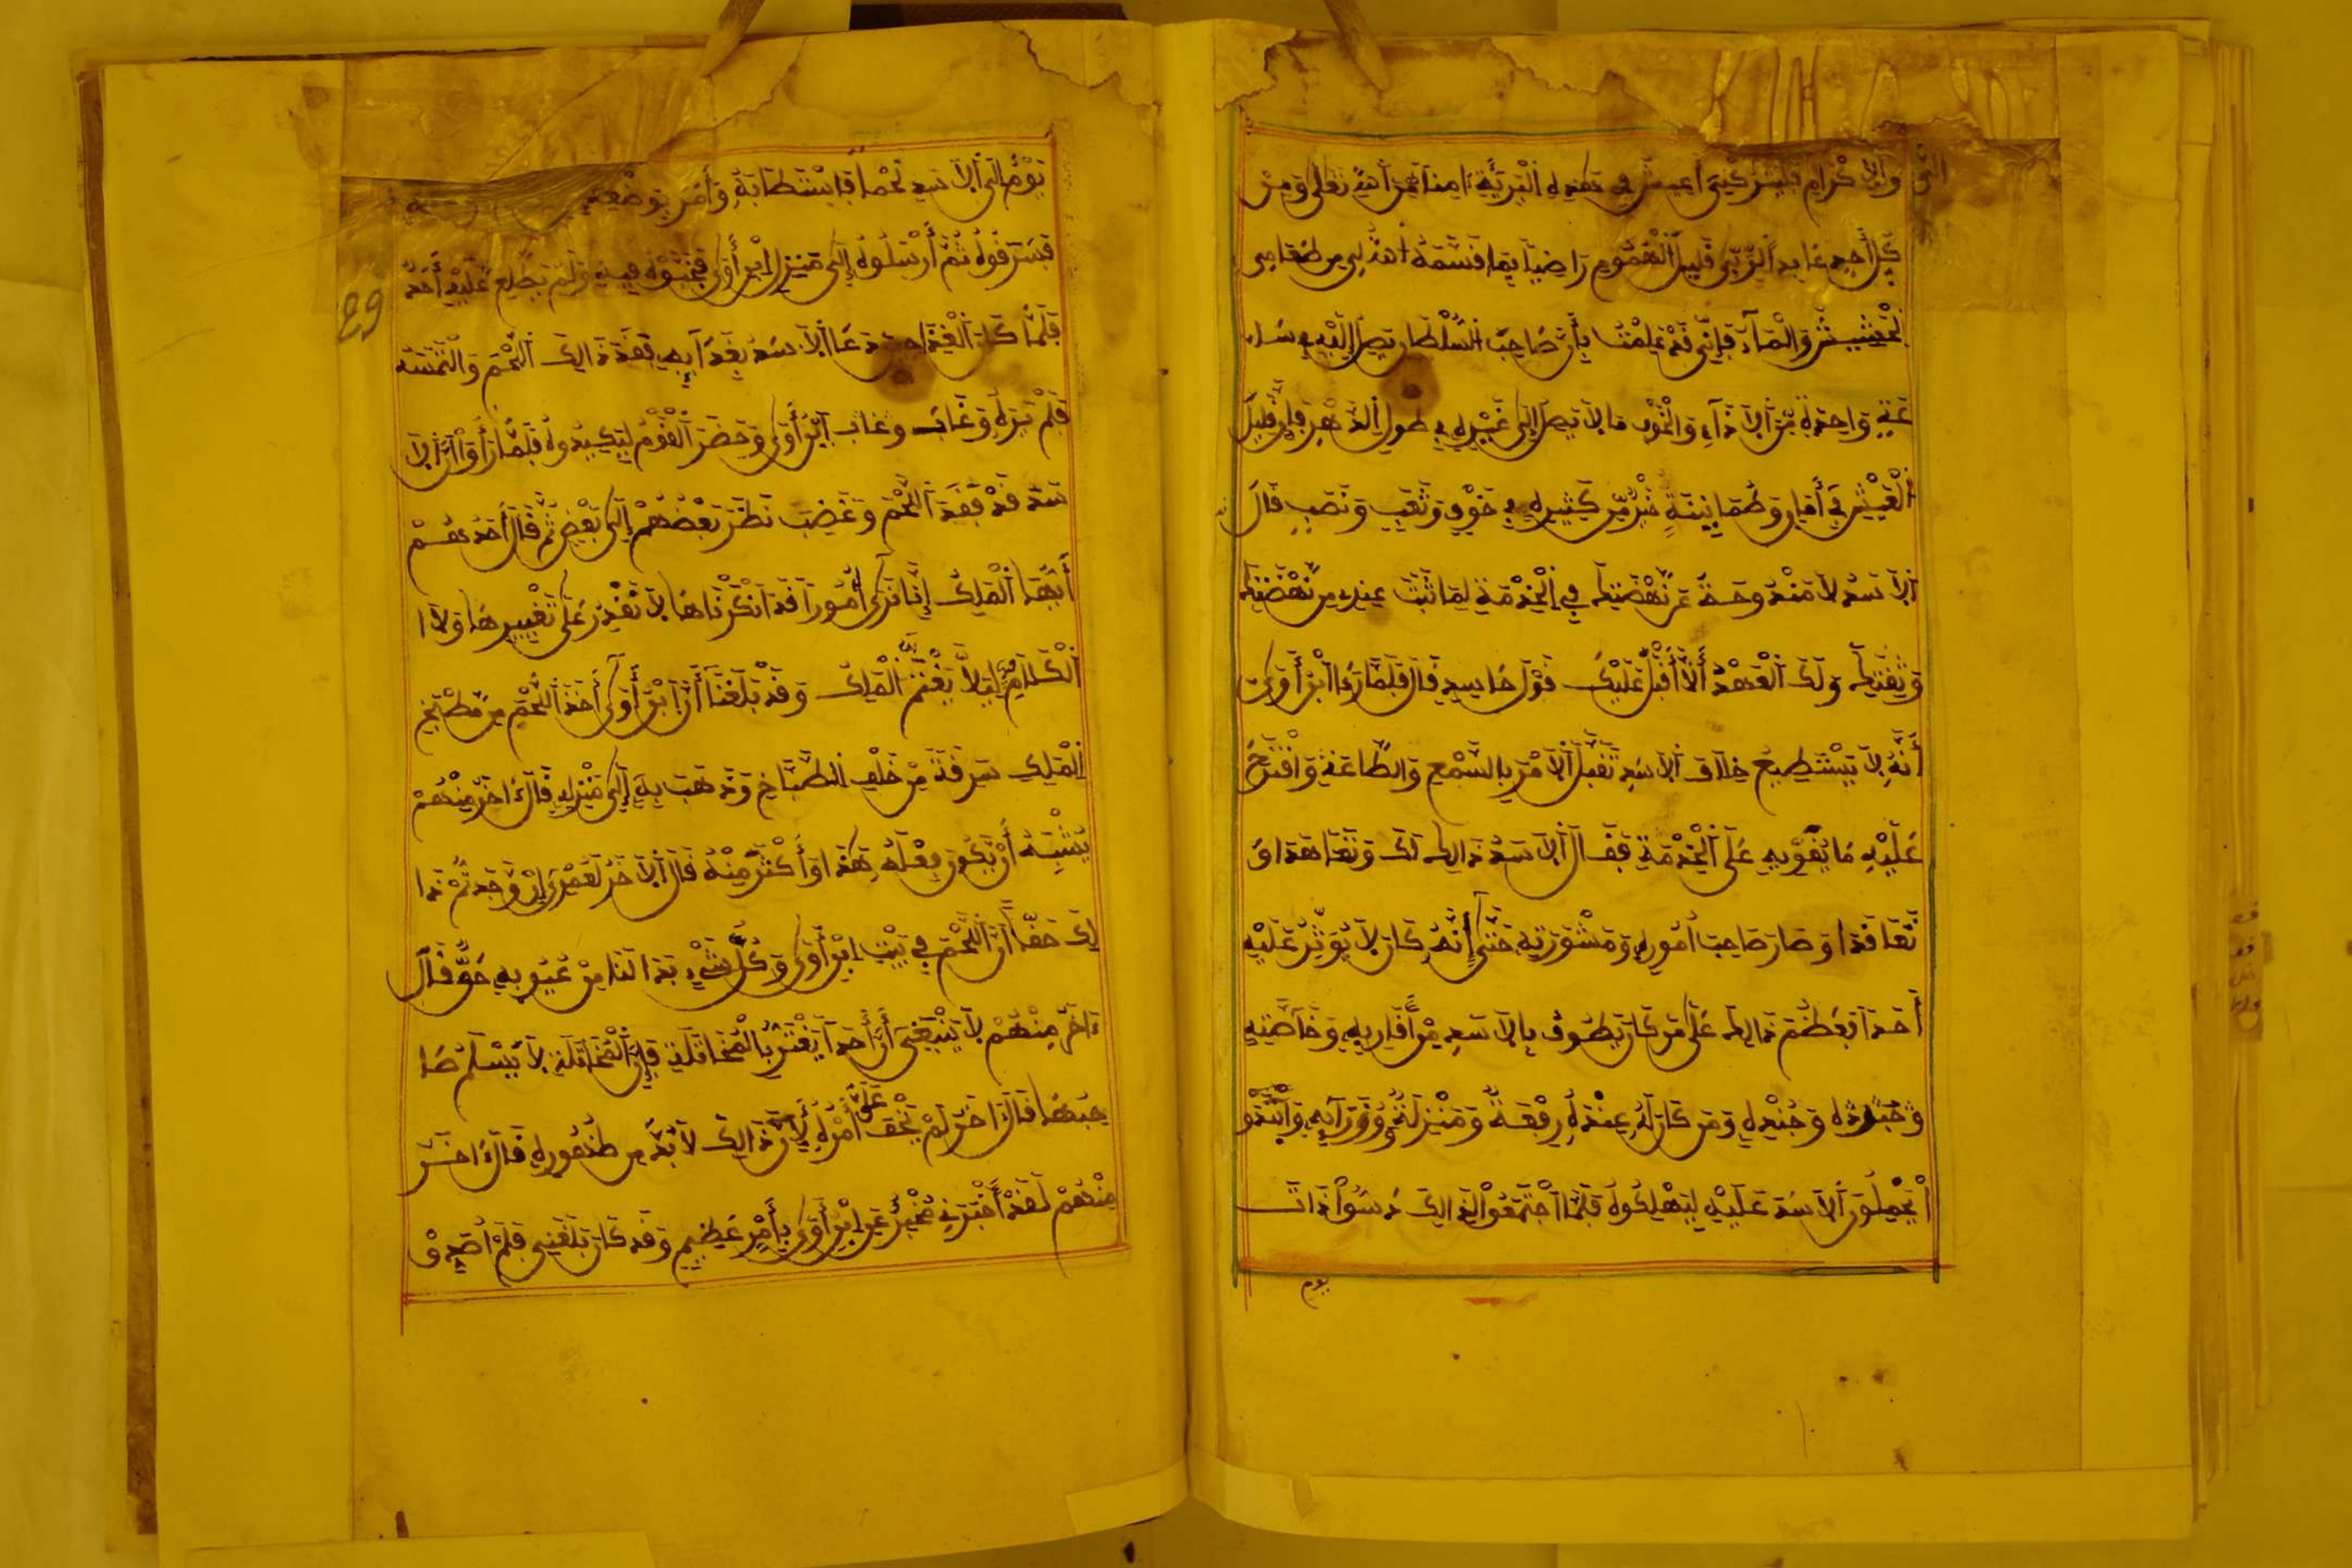 والاكرام فليتركني أعيش في هذه البرية ءامنا من الله تعلى ومن
كل أحد عابد الربي قليل الهموم راضيا بما قسمه الله لي من طعامي
الحشيش والماء فإني قد علمت بأن صاحب السلطان يصل إليه في سا
عة واحدة من الاذاء والخوف ما لا يصل إلى غيره في طول الدهر فإن قليل
العيش في أمان وطمانينة خير من كثيره في خوف وتعب ونصب قال
الاسد لا مندوحة عن نهضتك في الخدمة لما ثبت عندي من نهضتك
وثقتك ولك العهد ألا أقبل عليك قول حاسد قال فلما رءا ابن أوى
أنه لا يستطيع خلاف الاسد تقبل الامر بالسمع والطاعة واقترح
عليه ما يقويه على الخدمة فقال الاسد ذالك لك وتعاهدا و
تعاقدا وصار صاحب أموره ومشورته حتى إنه كان لا يوثر عليه
أحدا فعظم ذالك على من كان يطوف بالاسد من أقاربه وخاصته
وجنوده وجنده ومن كان له عنده رفعة ومنزلة ووزرآيه وابتدو
ا يحملون الاسد عليه ليهلكوه فلما اجتمعوا لذالك دسوا ذات
يوم
يوم إلى الاسد لحما فاستطابه وأمر بوضعه
فسرقوه ثم أرسلوه إلى منزل ابن أوى فخبوه فيه ولم يطلع عليه أحد
89
فلما كان الغد دعا الاسد بغدآيه ففقد ذالك اللحم والتمسه
فلم يره وغاب وغاب ابن أوى وحضر القوم ليكيدوه فلما رأوا أن الا
سد قد فقد اللحم وغضب نظر بعضهم إلى بعض ثم قال أحدهم
أيها الملك إنا نرى أمورا قد انكرناها لا نقدر على تغييرها ولا
الكلام ليلا يغتم الملك وقد بلغنا أن ابن أوى أخذ اللحم من مطبخ
الملك سرقة من خلف الطباخ وذهب به إلى منزله قال ءاخر منهم
يشبه أن يكون فعله هذا وأكثر منه قال الاخر لعمري إن وجدتم ذا
لك حقا أن اللحم في بيت ابن أوى وكل شيء بدا لنا من عيوبه حق قال
ءاخر منهم لا ينبغي أن أحدا يغتر بالمخاتلة فإن المخاتلة لا يسلم صا
حبها قال ءاخر لم يخف على أمره لأن ذالك لا بد من ظهوره قال ءاخر
منهم لقد أخبرني مخبر عن ابن أوى بأمر عظيم وقد كان بلغني فلم اصدق